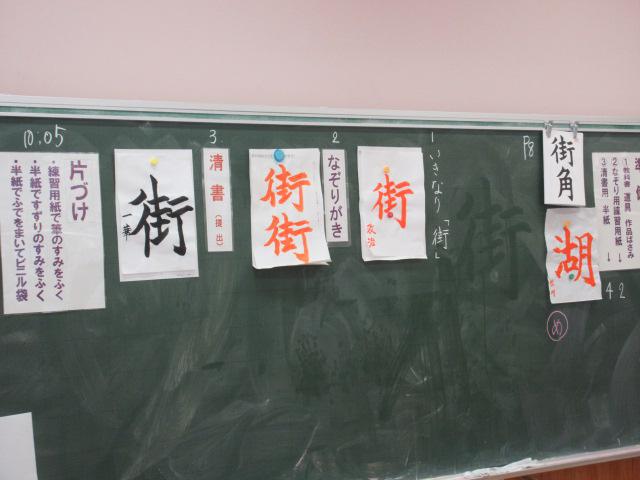 準
①教科書 道具 作品ばさみ
②なぞり用練習用紙 ↓ 2
③清書用 半紙 ↓ 4
街角
P8
湖
め
1
いきなり「街」
街
2
なぞりがき
街街
3.
清書(提出)
街
一華
10.05
片づけ
・練習用紙で筆のすみをふく
・半紙ですずりのすみをふく
・半紙でふでをまいてビニル袋